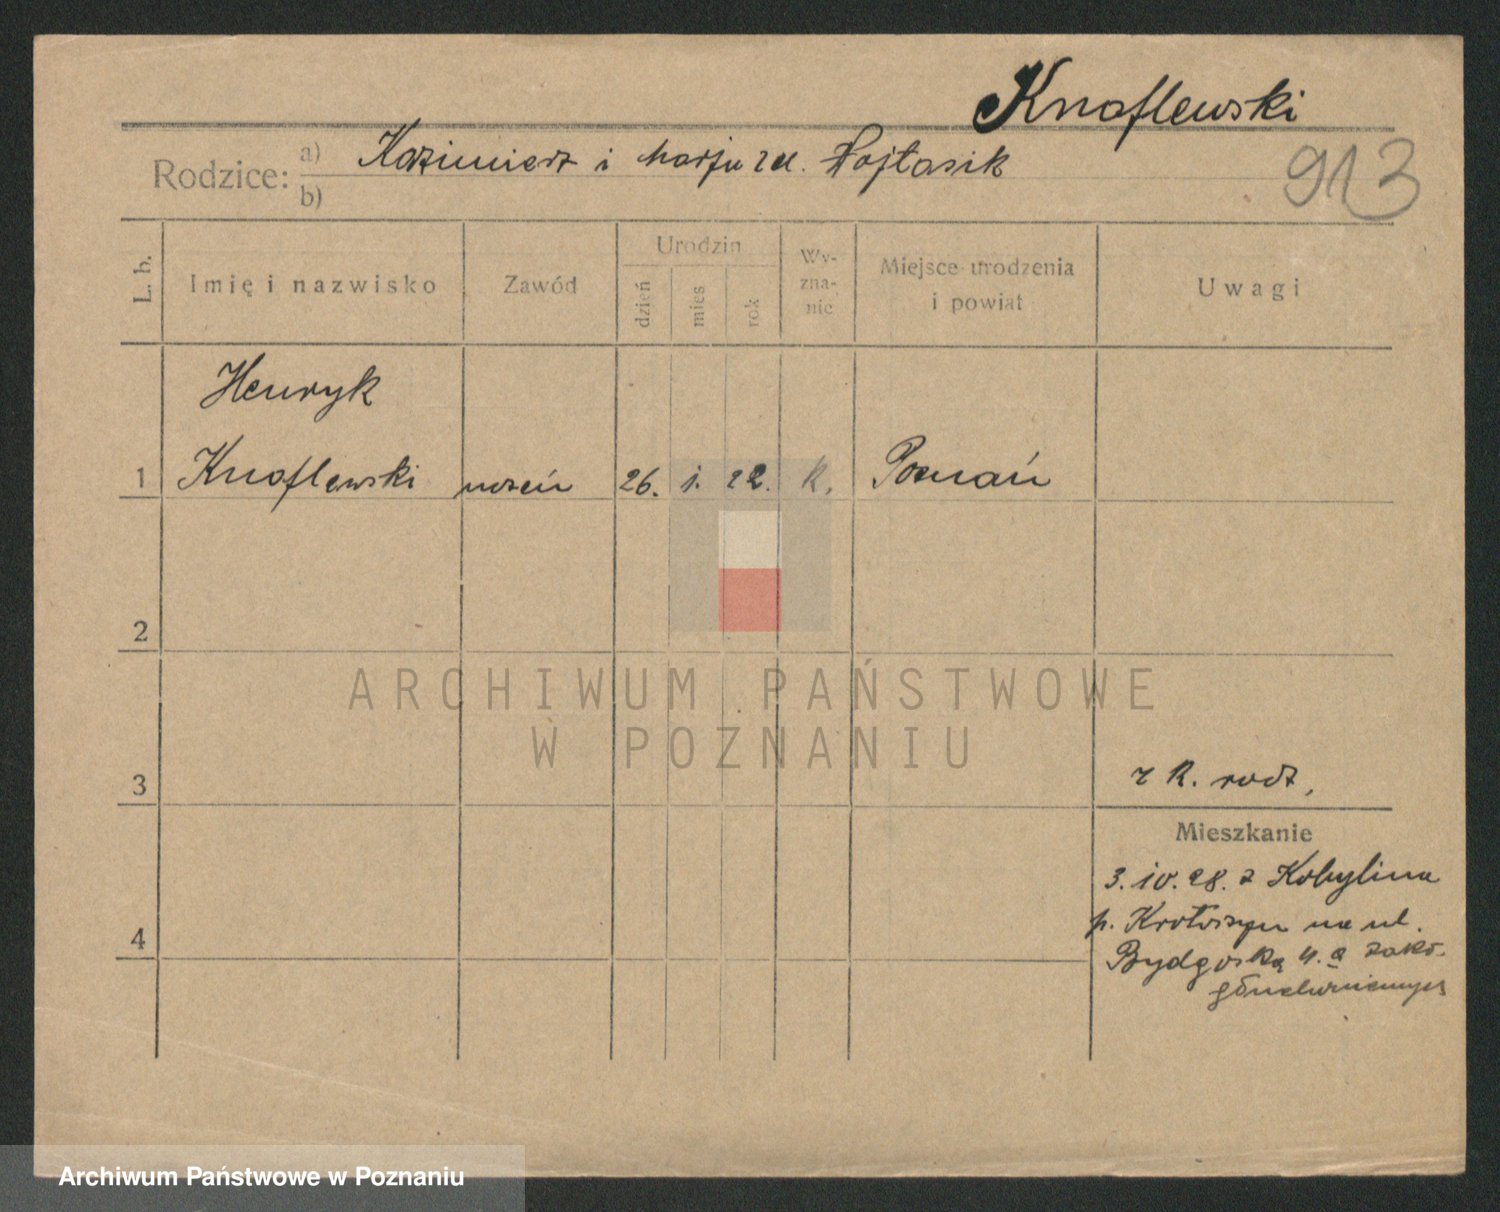 Knoflewski
Rodzice: a) Kazimierz i Marja zd. Wojtasik
b)
913
L. b.
Imię i nazwisko
Zawód
Urodzin
dzień
mies
rok
Wy-
zna-
nie
Miejsce urodzenia
i powiat
Uwagi
Henryk
1 Knoflewski uczeń 26. i. 22. k. Poznań
2
ARCHIWUM PAŃSTWOWE
W POZNANIU
3
z k. rodz.
Mieszkanie
3. iv. 28. z Kobylina
p. Krotoszyn na ul.
4
Bydgoską 4. a zakł.
głuchoniemych
Archiwum Państwowe w Poznaniu